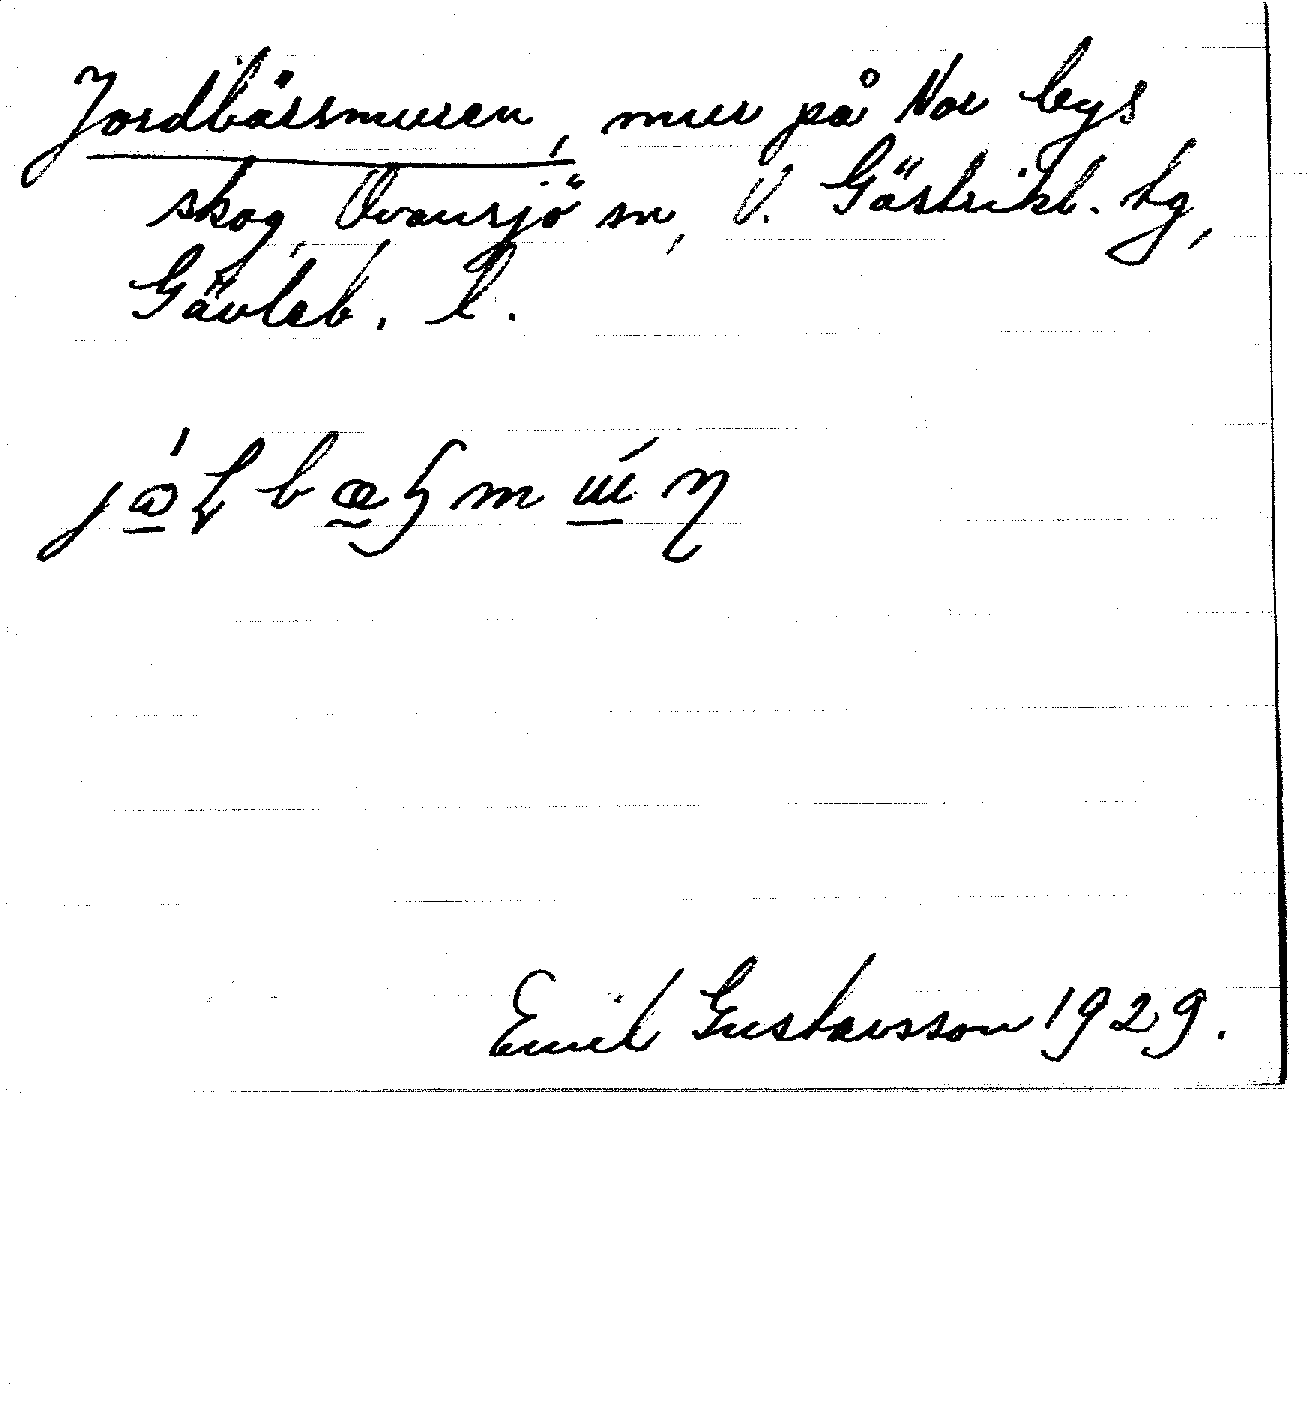 Jordbärsmuren, mur på Nor bys
skog, Ovansjö sn, V. Gästrikl. tg,
Gävleb. l.
Emil Gustavsson 1929.